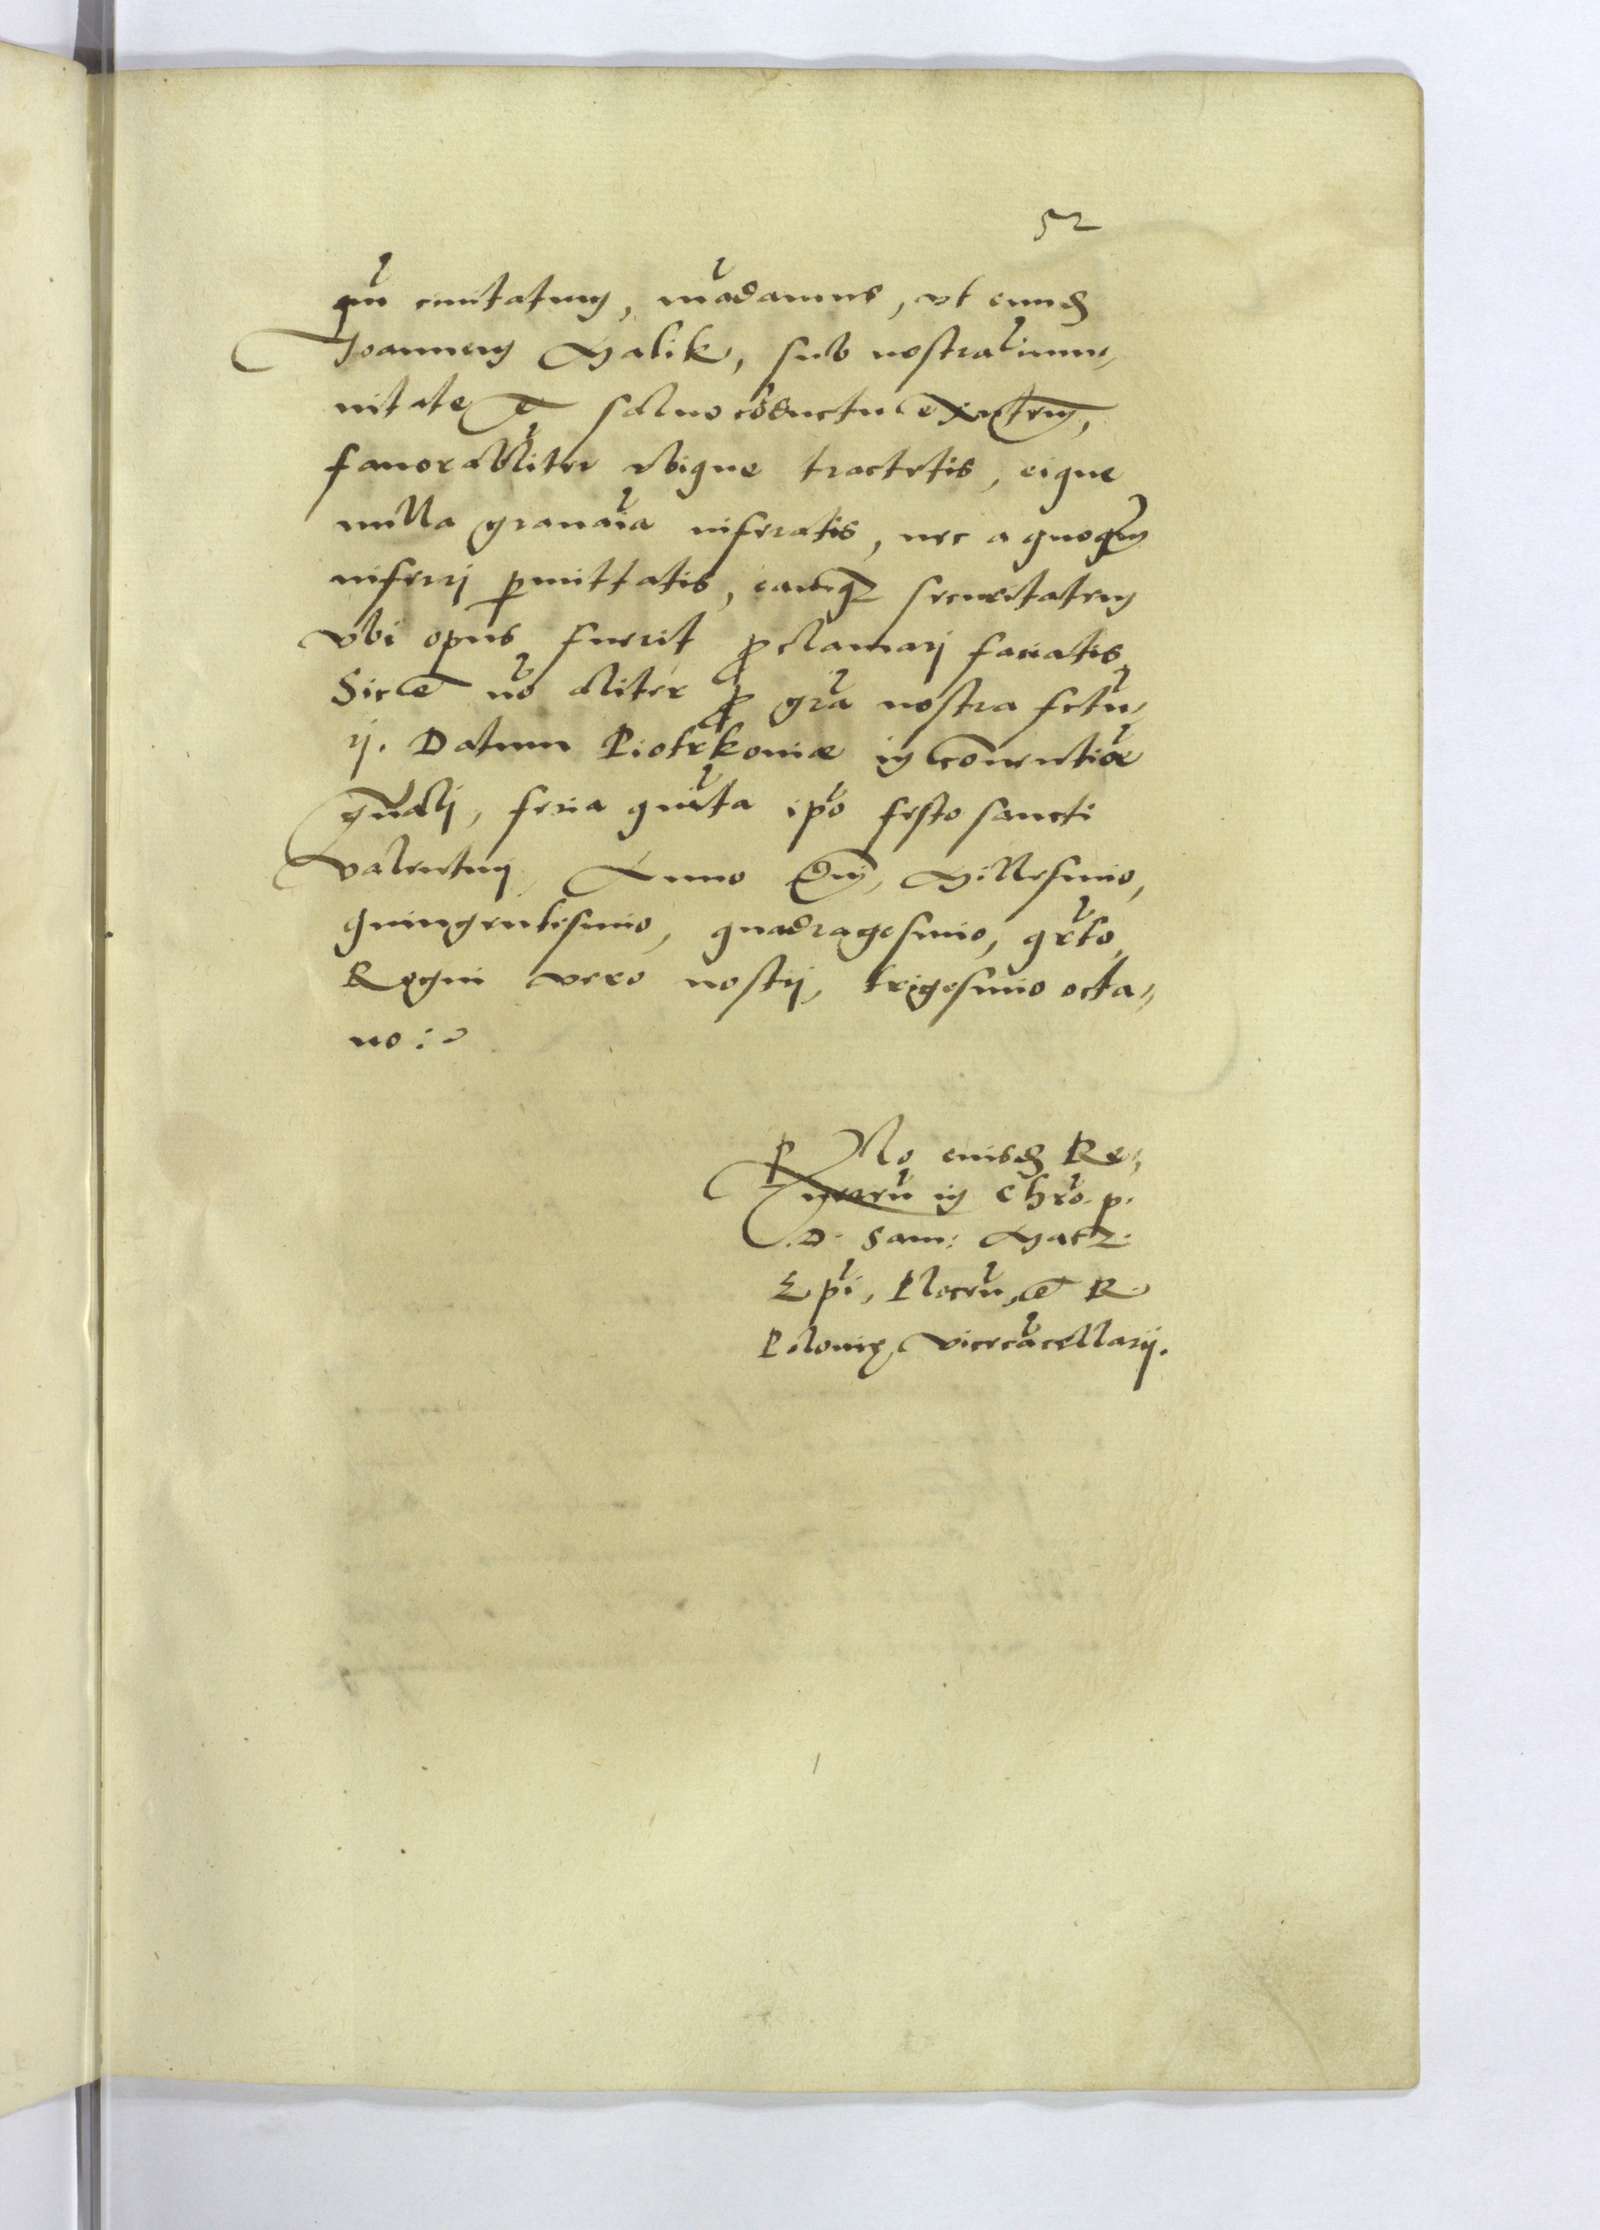 52
qu ciuitatum, madamus, vt eund
Joannem Malik, sub nostra immu-
nitate et saluo coductu existen tem,
fauorabiliter vbique tractetis, eique
nulla grauaia inferatis, nec a quoqm
inferrj pmittatis, eamq securitatem
vbi opus fuerit proclamarj faciatis,
Sic et no aliter p gra nostra fctu-
rj. Datum Piotrkouiae in conuentioe
gnalj, feria quita ipo festo sancti
Valentinj, Anno Dnj, Millesimo,
quingentesimo, quadragesimo, qrto,
Regni vero nostrj, trigesimo octa-
uo:
Rlo eiusd Re-
uereru in Chro. p.
D. Sam: Mac.
Epi, Plocen, et R
Polonię, Vicecacellarij.